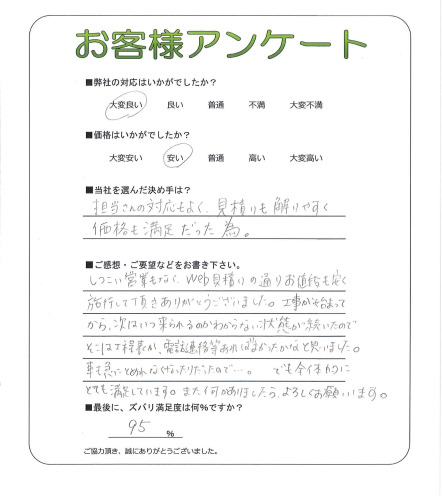 お客様アンケート
■弊社の対応はいかがでしたか？
大変良い 良い 普通 不満 大変不満
■価格はいかがでしたか？
大変安い 安い 普通 高い 大変高い
■当社を選んだ決め手は？
担当さんの対応もよく、見積りも解りやすく
価格も満足だった為。
■ご感想・ご要望などをお書き下さい。
しつこい営業もなく、Web見積りの通りお値段も安く
施行して頂きありがとうございました。工事が始まって
から、次はいつ来られるのかわからない状態が続いたので
そこは工程表か、電話連絡等あればよかったかなと思いました。
車も急にとめれなくなったりだったので…。でも全体的に
とても満足しています。また何かありましたら、よろしくお願いします。
■最後に、ズバリ満足度は何%ですか？
95 %
ご協力頂き、誠にありがとうございました。